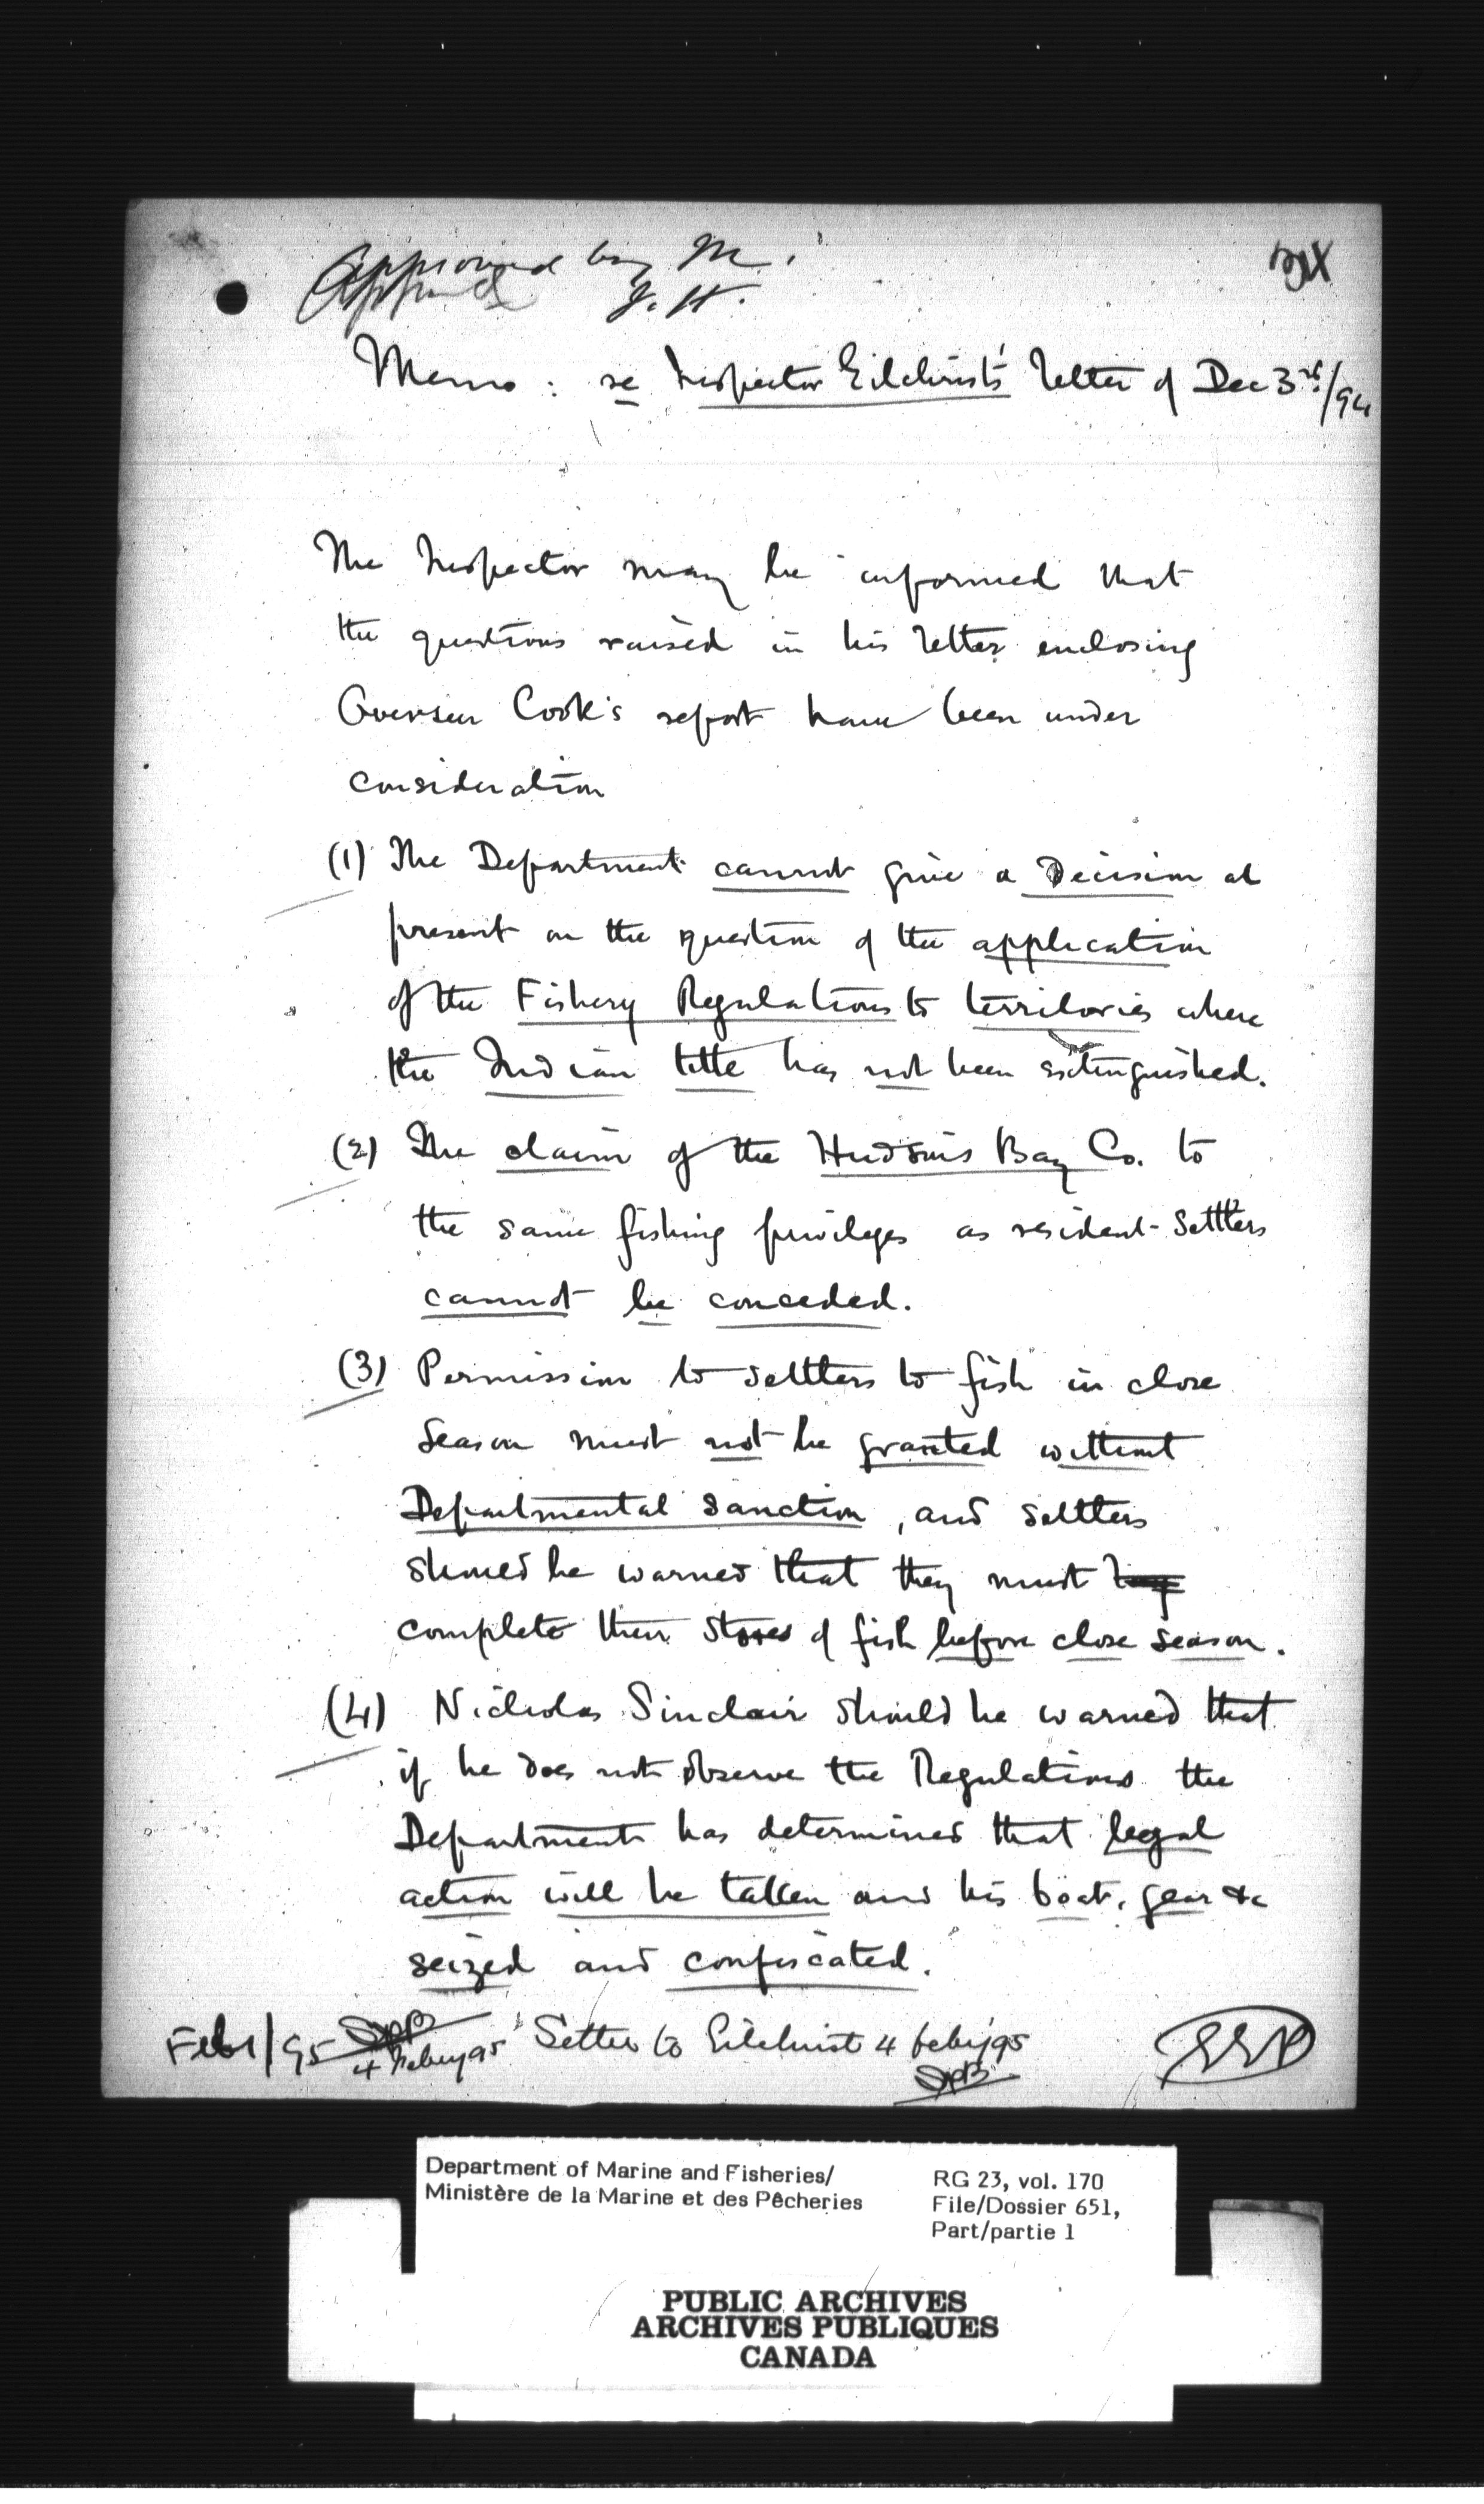 Approved by M.
J. H.
Memo: re Inspector Gilchrist's letter of Dec 3rd/94
The Inspector may be informed that
the questions raised in his letter enclosing
Overseer Cook's report have been under
consideration
(1) The Department cannot give a Decision at
present on the question of the application
of the Fishery Regulations to territories where
the Indian title has not been extinguished.
(2) The claim of the Hudson's Bay Co. to
the same fishing privileges as resident settlers
cannot be conceded.
(3) Permission to settlers to fish in close
Season must not be granted without
Departmental sanction, and settlers
should be warned that they must
complete their stores of fish before close season.
(4) Nicholas Sinclair should be warned that
if he does not observe the Regulations the
Department has determined that legal
action will be taken and his boat, gear &c
seized and confiscated.
Feb 1/95
4 Feby 95
Letter to Gilchrist 4 Feby 95
EEP
Department of Marine and Fisheries/
Ministère de la Marine et des Pêcheries
RG 23, vol. 170
File/Dossier 651,
Part/partie 1
PUBLIC ARCHIVES
ARCHIVES PUBLIQUES
CANADA